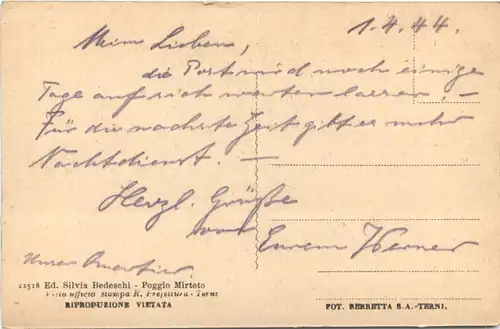 1.4.44.
Meine Lieben,
die Post wird noch einige
Tage auf sich warten lassen. —
Für die nächste Zeit gibt es mehr
Nachtdienst. —
Herzl. Grüße
von
Eurem Werner
Unser Quartier.
22518 Ed. Silvia Bedeschi - Poggio Mirteto
Visto ufficio stampa R. Prefettura - Terni
RIPRODUZIONE VIETATA
FOT. BERRETTA S.A.-TERNI.